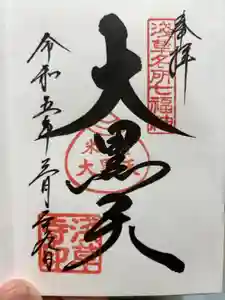 奉拝
浅草名所七福神
大黒天
米
大黒天
浅草寺印
令和五年三月二九日